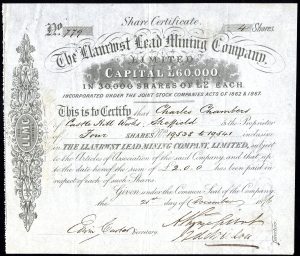 Share Certificate.
No. 779
4 Shares
The Llanrwst Lead Mining Company,
LIMITED
CAPITAL £60,000
IN 30,000 SHARES OF £2 EACH.
INCORPORATED UNDER THE JOINT STOCK COMPANIES ACTS OF 1862 & 1867.
This is to Certify that Charles Chambers
Castle Works Sheffield is the Proprietor
of Four SHARES Nos. 19538 to 19541 inclusive
in THE LLANRWST LEAD MINING COMPANY, LIMITED, subject
to the Articles of Association of the said Company, and that up
to the date hereof the sum of £2.0.0 has been paid in
respect of each of such Shares.
Given under the Common Seal of the Company
the 21st day of December 187
Secretary
LLMC